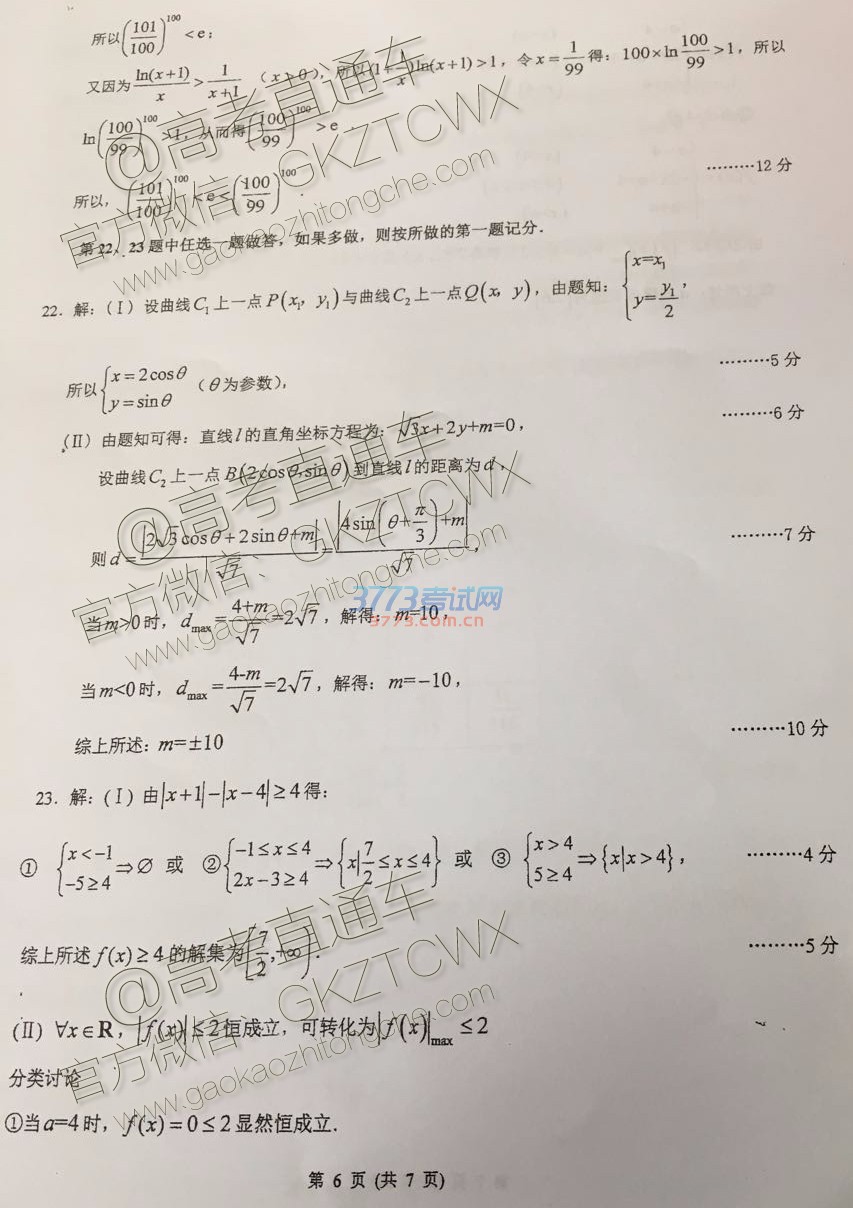 所以(101/100)^100 <e;
又因为 ln(x+1)/x > 1/(x+1) (x>0), 所以(1+1/x)ln(x+1)>1, 令x=1/99得: 100×ln 100/99 >1, 所以
ln(100/99)^100 >1, 从而得(100/99)^100 >e
所以, (101/100)^100 <e< (100/99)^100 ………12 分
第22、23题中任选一题做答, 如果多做, 则按所做的第一题记分.
22. 解: (Ⅰ) 设曲线C₁上一点P(x₁, y₁)与曲线C₂上一点Q(x, y), 由题知: {x=x₁ y=y₁/2,
所以{x=2cosθ y=sinθ (θ为参数), ………5 分
(Ⅱ) 由题知可得: 直线l的直角坐标方程为: √3x+2y+m=0, ………6 分
设曲线C₂上一点B(2cosθ,sinθ)到直线l的距离为d,
则d=|2√3cosθ+2sinθ+m|/√7=|4sin(θ+π/3)+m|/√7, ………7 分
当m>0时, d_max=(4+m)/√7=2√7, 解得: m=10,
当m<0时, d_max=(4-m)/√7=2√7, 解得: m=-10,
综上所述: m=±10 ………10 分
23. 解: (Ⅰ) 由|x+1|-|x-4|≥4得:
① {x<-1 -5≥4 ⇒∅ 或 ②{-1≤x≤4 2x-3≥4 ⇒{x|7/2≤x≤4} 或 ③ {x>4 5≥4 ⇒{x|x>4}, ………4 分
综上所述f(x)≥4的解集为[7/2,+∞). ………5 分
(Ⅱ) ∀x∈R, |f(x)|≤2恒成立, 可转化为|f(x)|_max ≤2
分类讨论
①当a=4时, f(x)=0≤2显然恒成立.
第 6 页 (共 7 页)
@高考直通车
官方微信、GKZTCWX
www.gaokaozhitongche.com
@高考直通车
官方微信、GKZTCWX
www.gaokaozhitongche.com
3773考试网
3773.com.cn
@高考直通车
官方微信、GKZTCWX
www.gaokaozhitongche.com